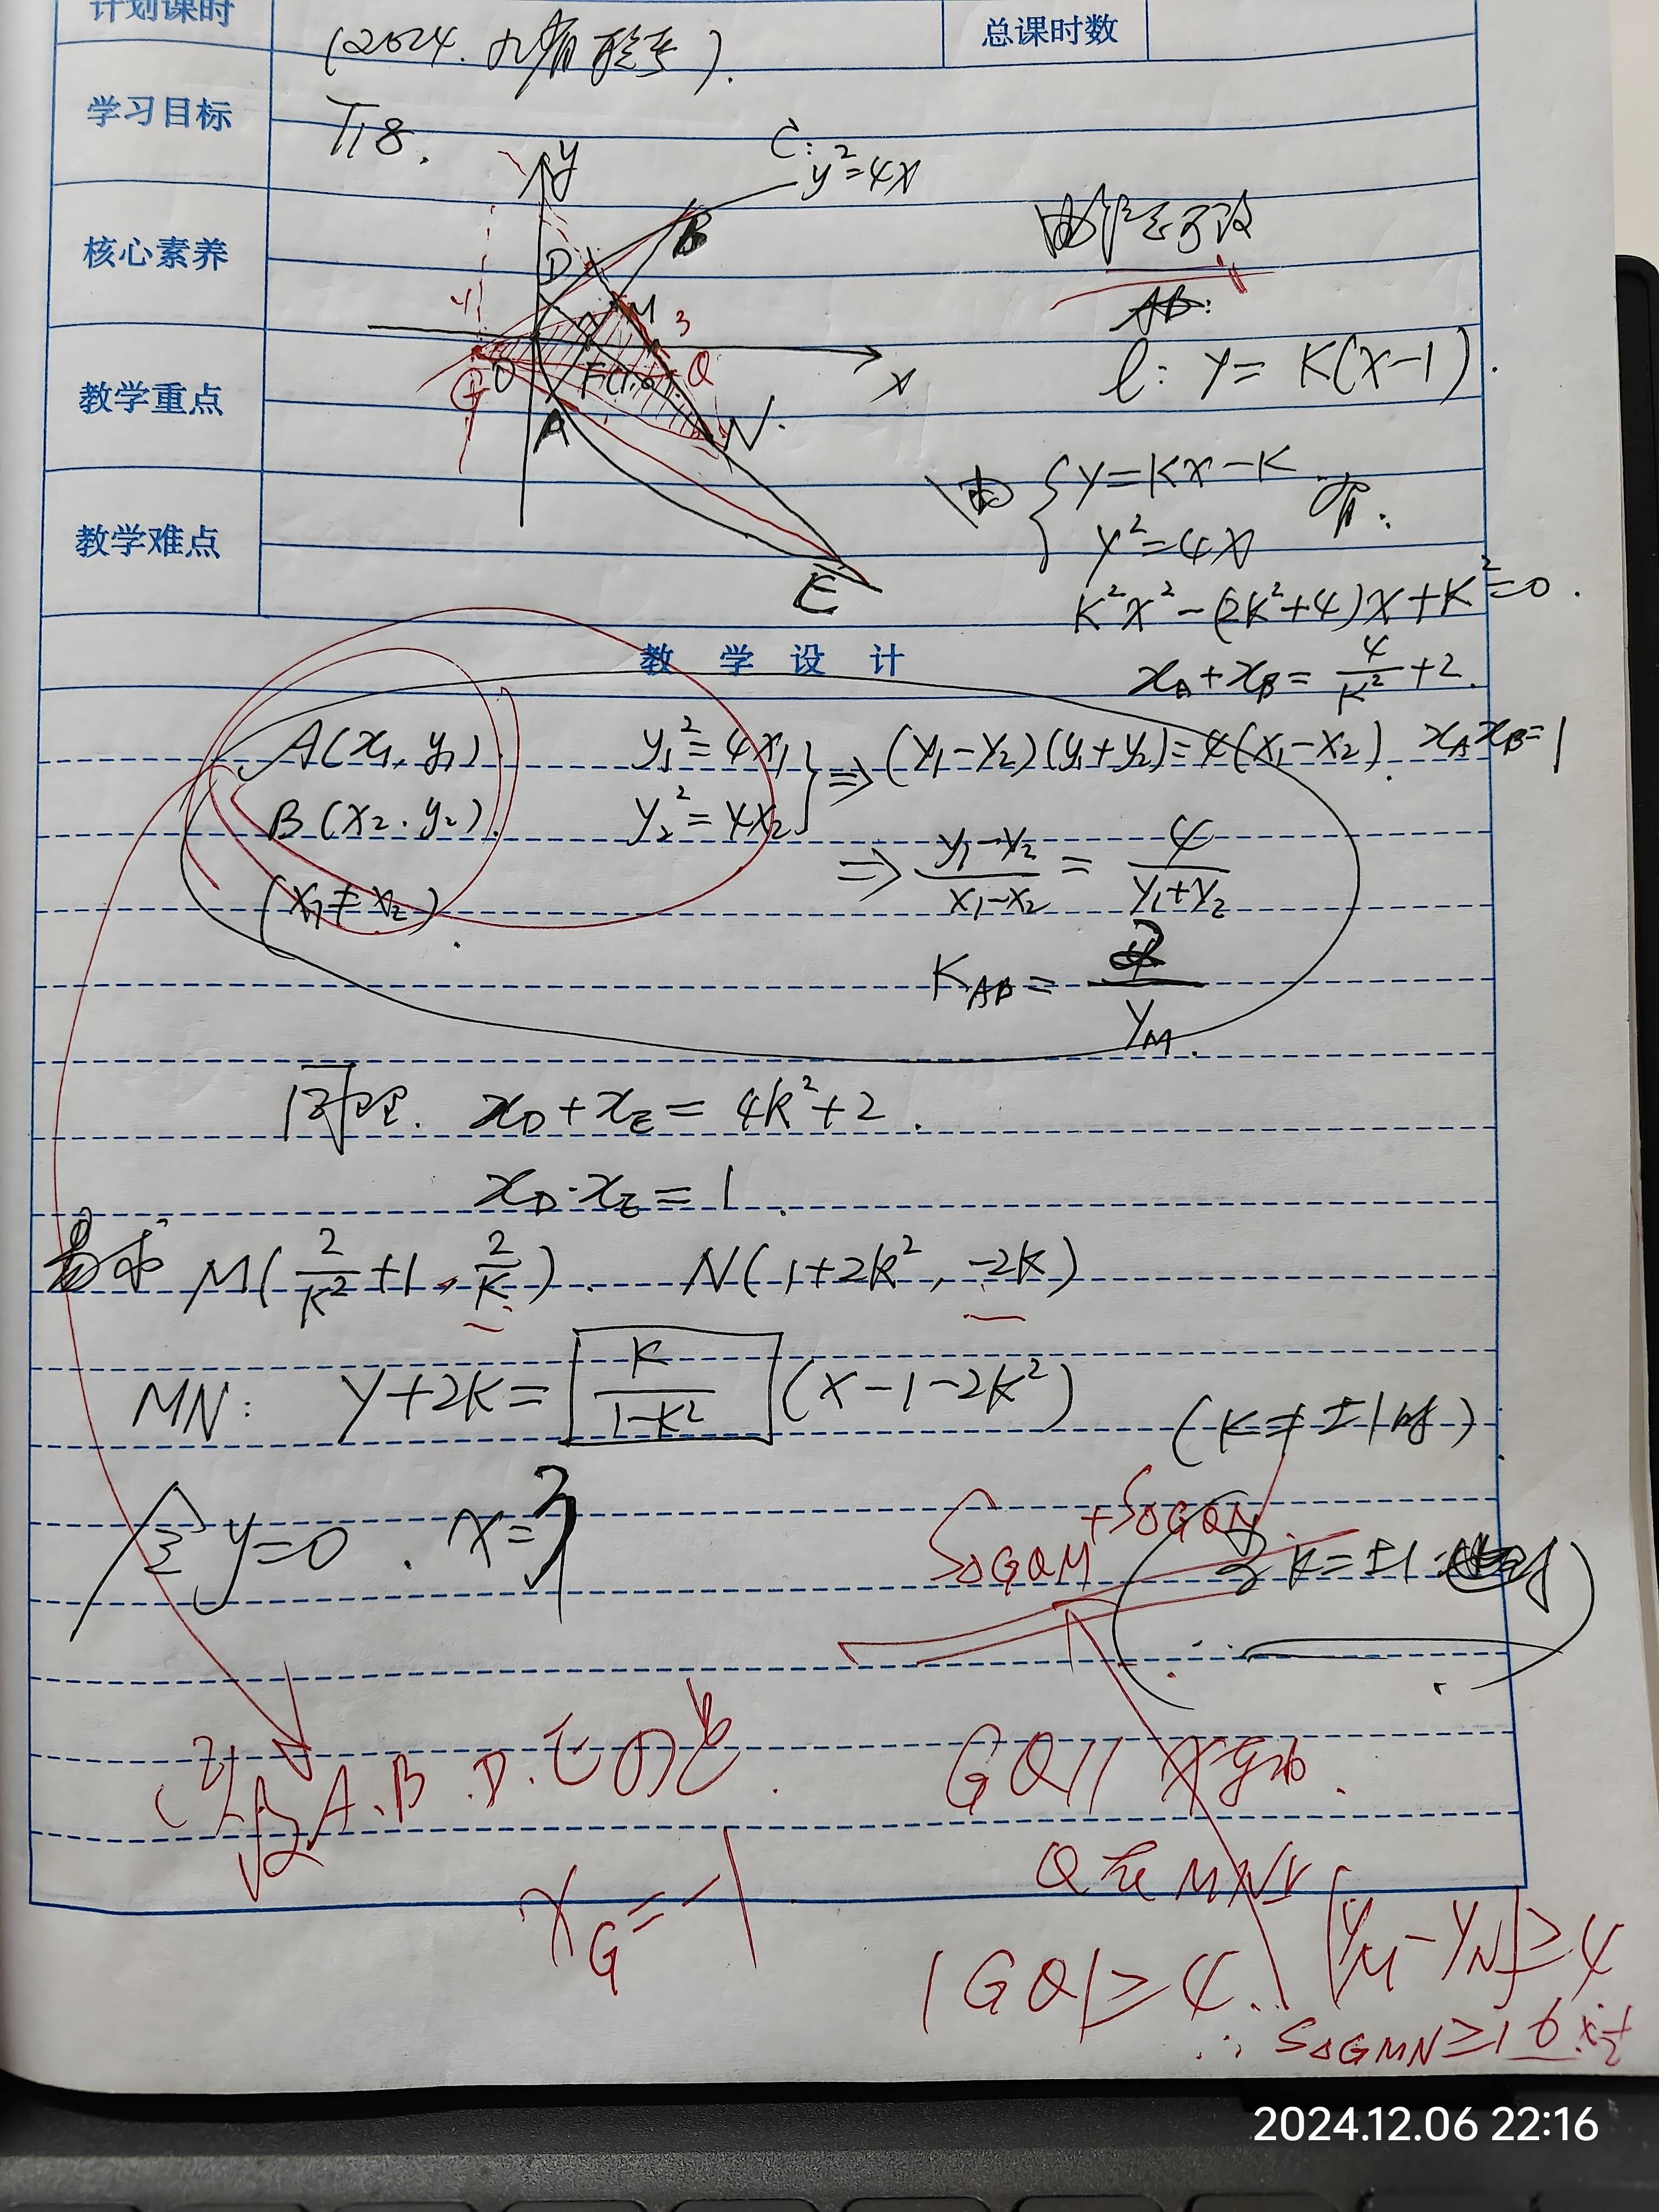 计划课时
总课时数
(2024.九省联考).
学习目标
T18.
C: y²=4x
核心素养
教学重点
教学难点
y
B
D
M
4
3
G
O
F(1,0)
Q
x
A
N
E
AB:
l: y=K(x-1).
由 { y=Kx-K
y²=4x 有:
K²x²-(2K²+4)x+K²=0.
教 学 设 计
x_A+x_B=4/K²+2.
x_A x_B=1
A(x₁,y₁).
y₁²=4x₁
B(x₂,y₂).
y₂²=4x₂
} ⇒ (y₁-y₂)(y₁+y₂)=4(x₁-x₂).
(x₁≠x₂).
⇒ (y₁-y₂)/(x₁-x₂)=4/(y₁+y₂)
K_AB=2/y_M.
同理. x_D+x_E=4k²+2.
x_D·x_E=1.
易求 M(2/K²+1, 2/K). N(1+2k², -2k)
MN: y+2k=K/(1-K²)(x-1-2k²)
(k≠±1时).
令y=0. x=3
S△GQM+S△GQN
k=±1时
A.B.D.E
GQ∥x轴.
x_G=-1
Q在MN上
|GQ|≥4. |y_M-y_N|≥4
∴ S△GMN≥16×½
2024.12.06 22:16